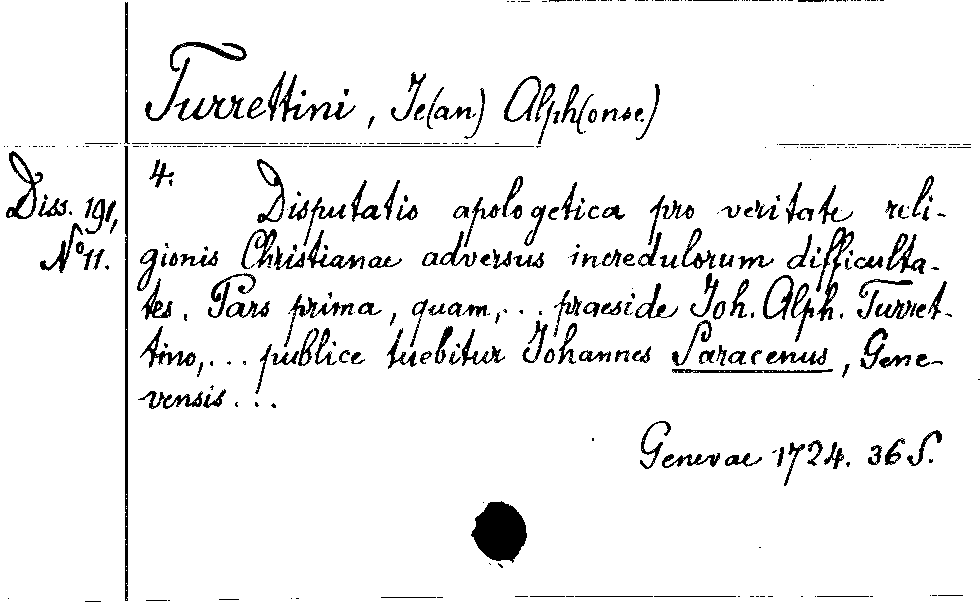 Turrettini, Je(an) Alph(onse)
Diss. 191,
N° 11.
4.
Disputatio apologetica pro veritate reli-
gionis Christianae adversus incredulorum difficulta-
tes. Pars prima, quam, ... praeside Joh. Alph. Turret-
tino, ... publice tuebitur Johannes Saracenus, Gene-
vensis ...
Genevae 1724. 36 S.